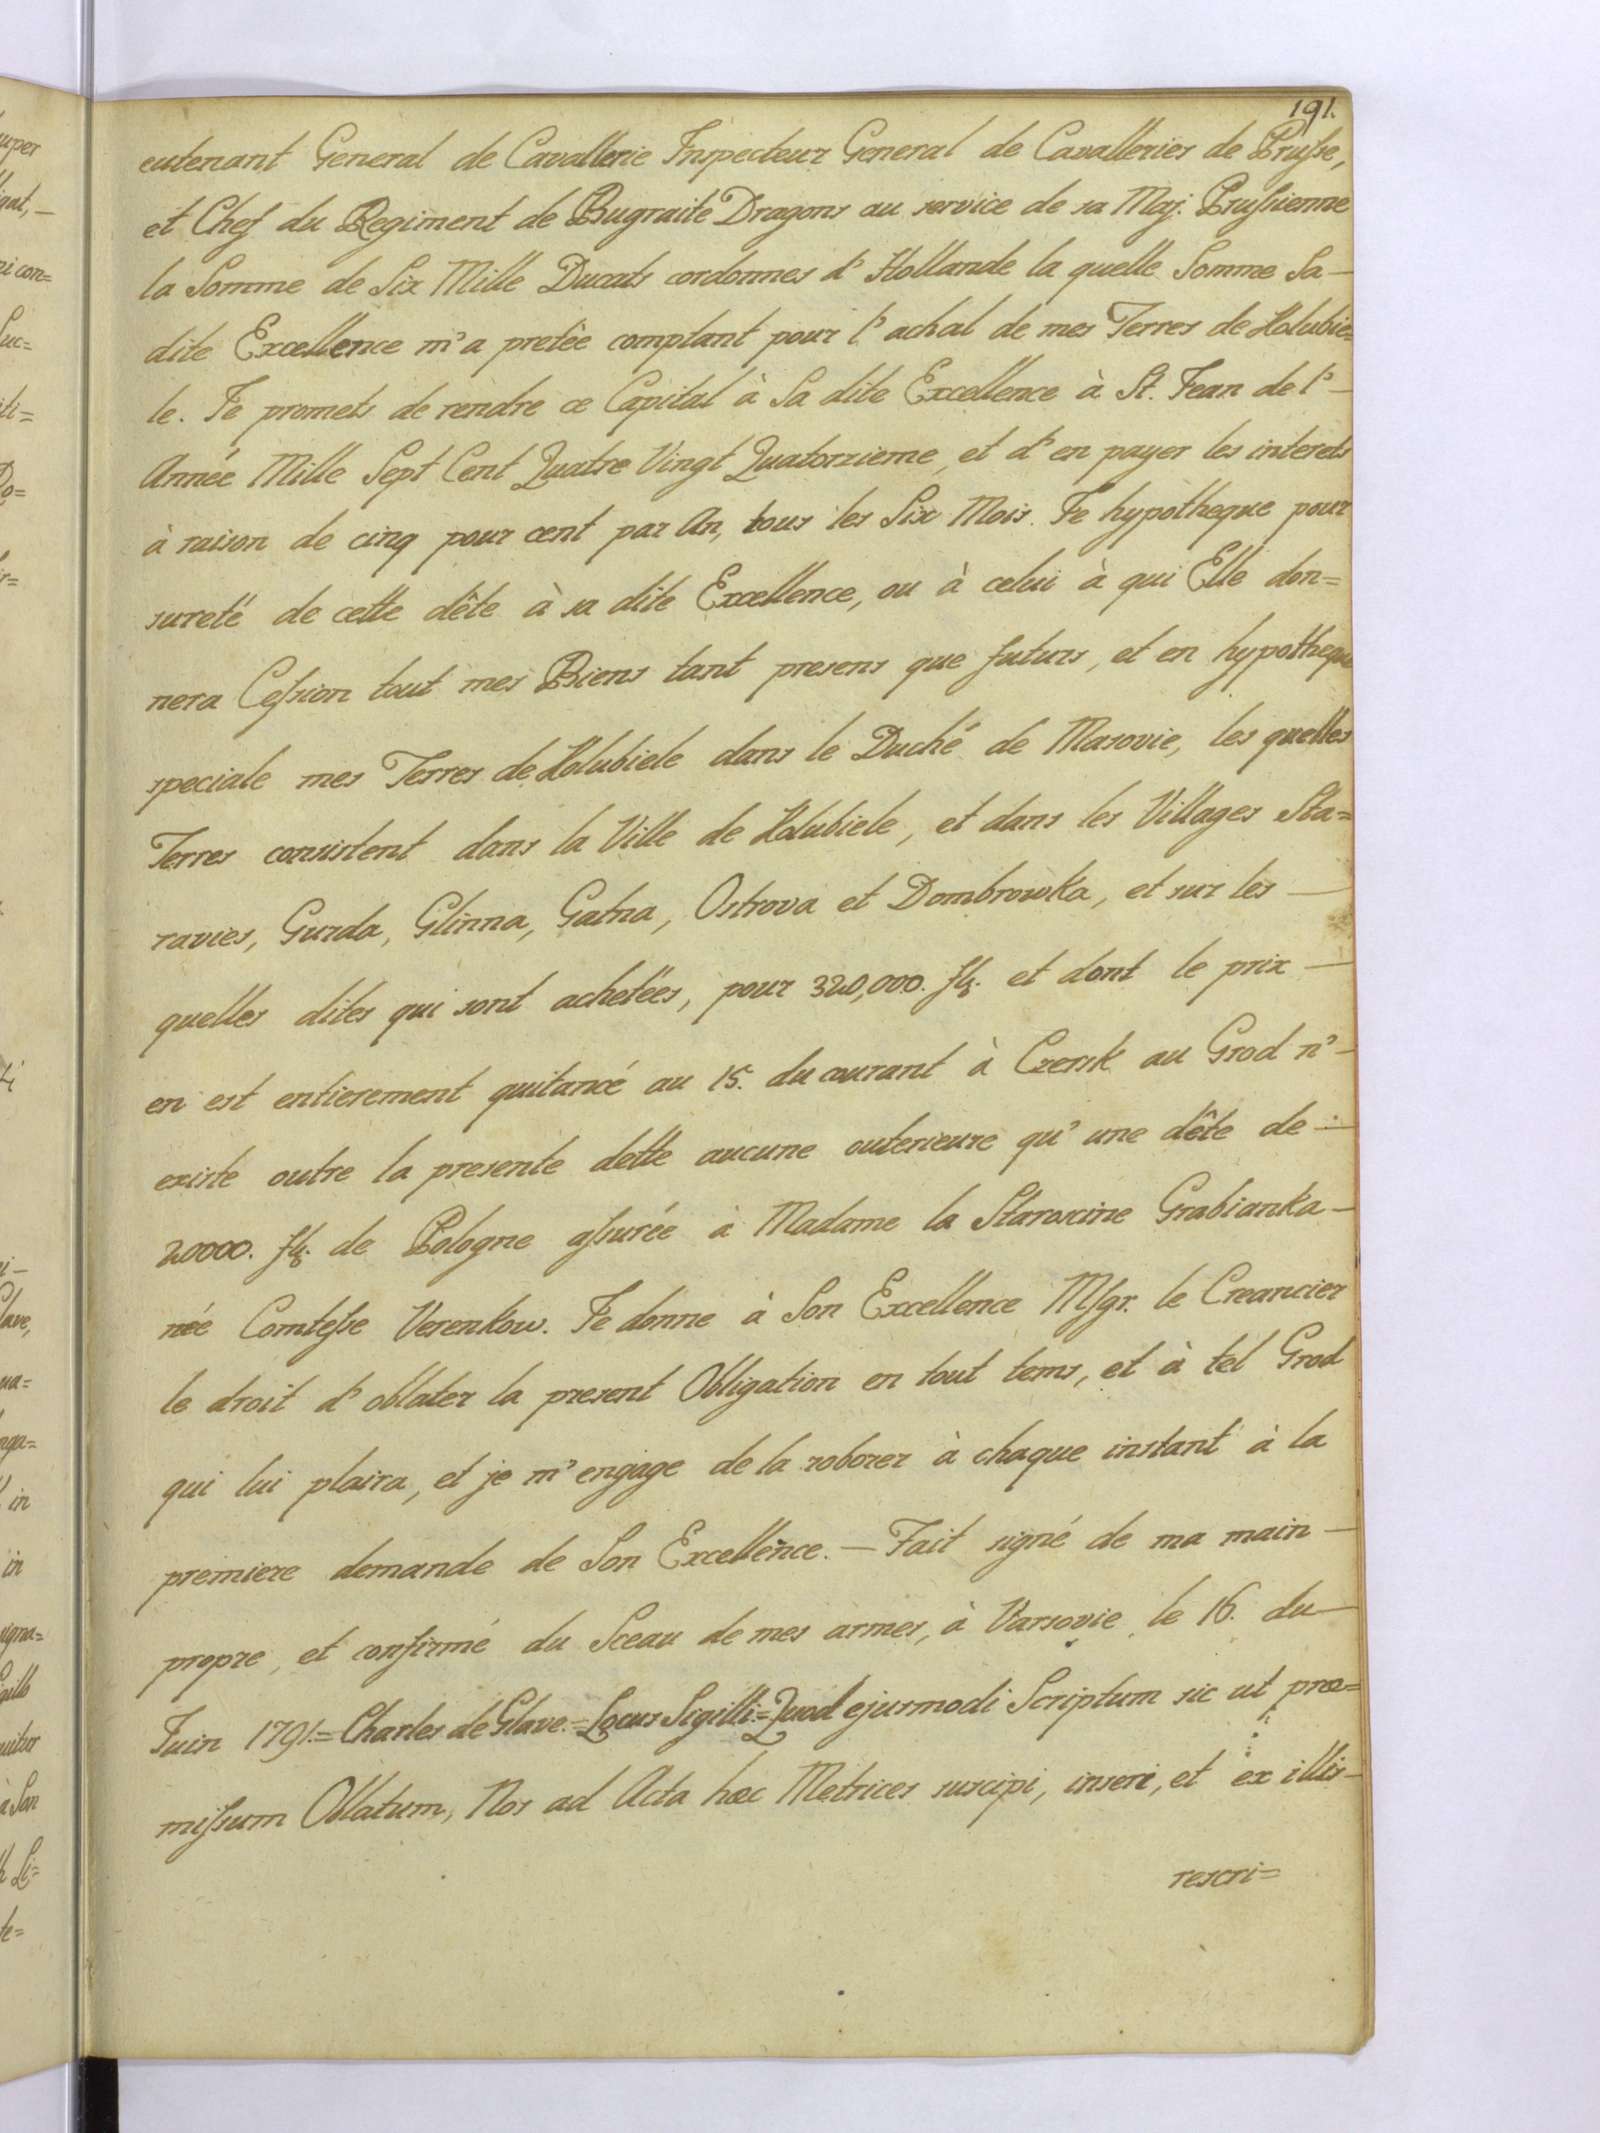 191.
eutenant General de Cavallerie Inspecteur General de Cavalleries de Prusse,
et Chef du Regiment de Bugraite Dragons au service de sa Maj. Prussienne
la Somme de Six Mille Ducats cordonnes d'Hollande la quelle Somme Sa-
dite Excellence m'a pretée comptant pour l'achat de mes Terres de Kolubie=
le. Je promets de rendre ce Capital à Sa dite Excellence à St. Jean de l'-
Année Mille Sept Cent Quatre Vingt Quatorzieme, et d'en payer les interets
à raison de cinq pour cent par An, tous les Six Mois. Je hypotheque pour
sureté de cette dête à sa dite Excellence, ou à celui à qui Elle don=
nera Cession tout mes Biens tant presens que futurs, et en hypotheque
speciale mes Terres de Kolubiele dans le Duché de Masovie, les quelles
Terres consistent dans la Ville de Kolubiele, et dans les Villages Sta=
ravies, Gurda, Glinna, Gatna, Ostrova et Dombrowka, et sur les —
quelles dites qui sont achetées, pour 320,000. fl. et dont le prix —
en est entierement quitancé au 15. du courant à Czersk au Grod n'-
existe outre la presente dette aucune outerieure qu'une dête de —
20000. fl. de Pologne assurée à Madame la Staroscine Grabianka —
née Comtesse Verenkow. Je donne à Son Excellence Msgr. le Creancier
le droit d'oblater la present Obligation en tout tems, et à tel Grod
qui lui plaira, et je m'engage de la roborer à chaque instant à la
premiere demande de Son Excellence. — Fait signé de ma main —
propre, et confirmé du Sceau de mes armes, à Varsovie le 16. du —
Juin 1791.= Charles de Glave.= Locus Sigilli.= Quod ejusmodi Scriptum sic ut prae=
missum Oblatum, Nos ad Acta haec Metrices suscipi, inseri, et ex illis —
rescri=